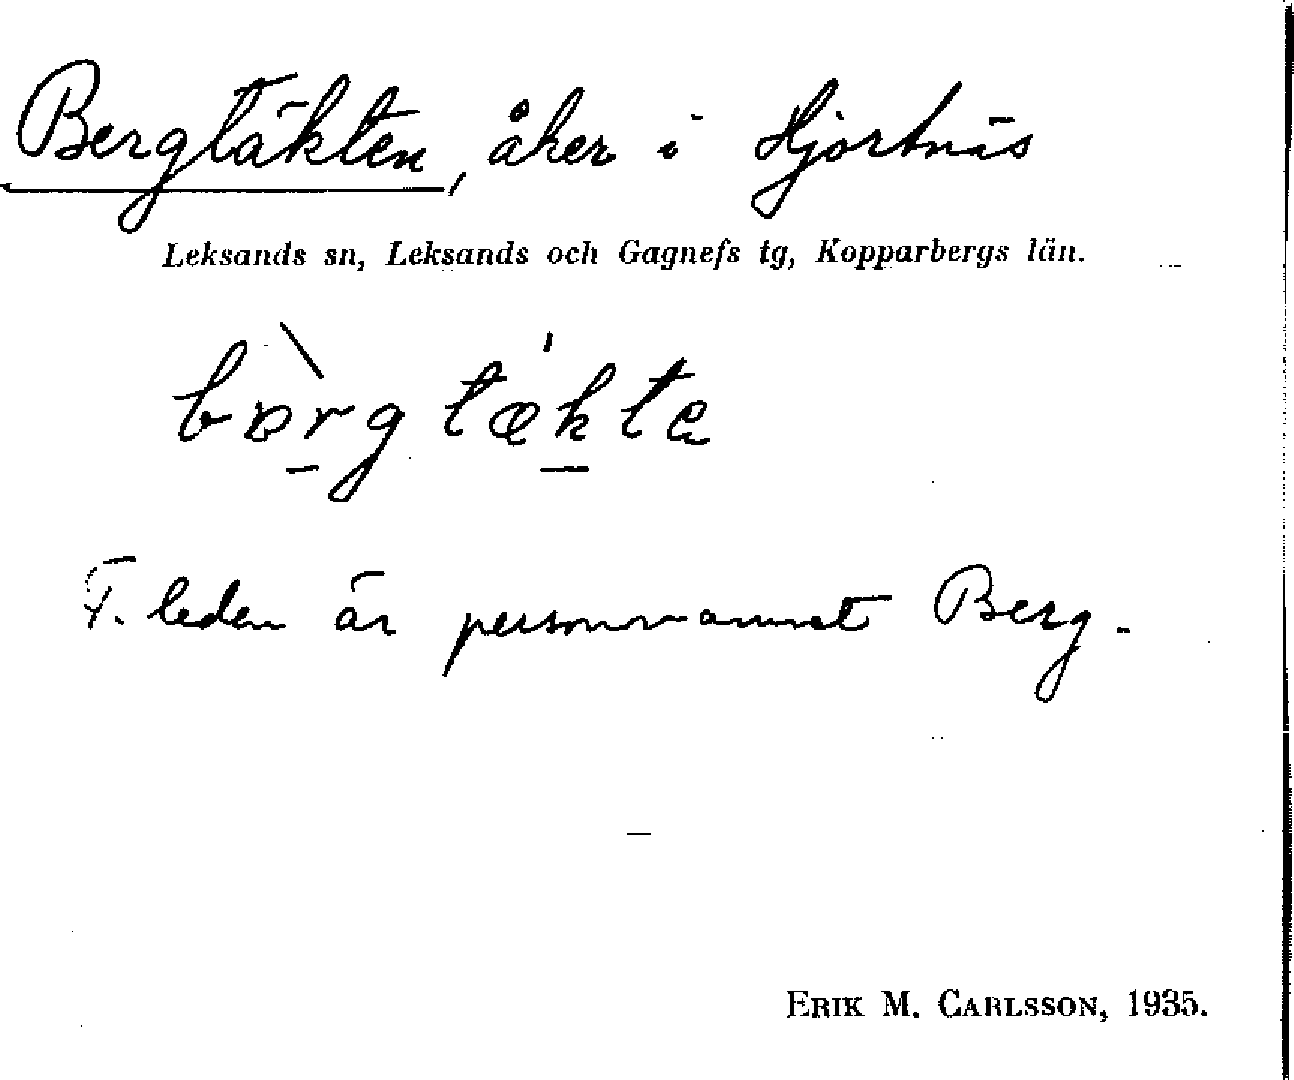 Bergtäkten, åker i Hjortnäs
Leksands sn, Leksands och Gagnefs tg, Kopparbergs län.
F. leden är personnamnet Berg.
ERIK M. CARLSSON, 1935.